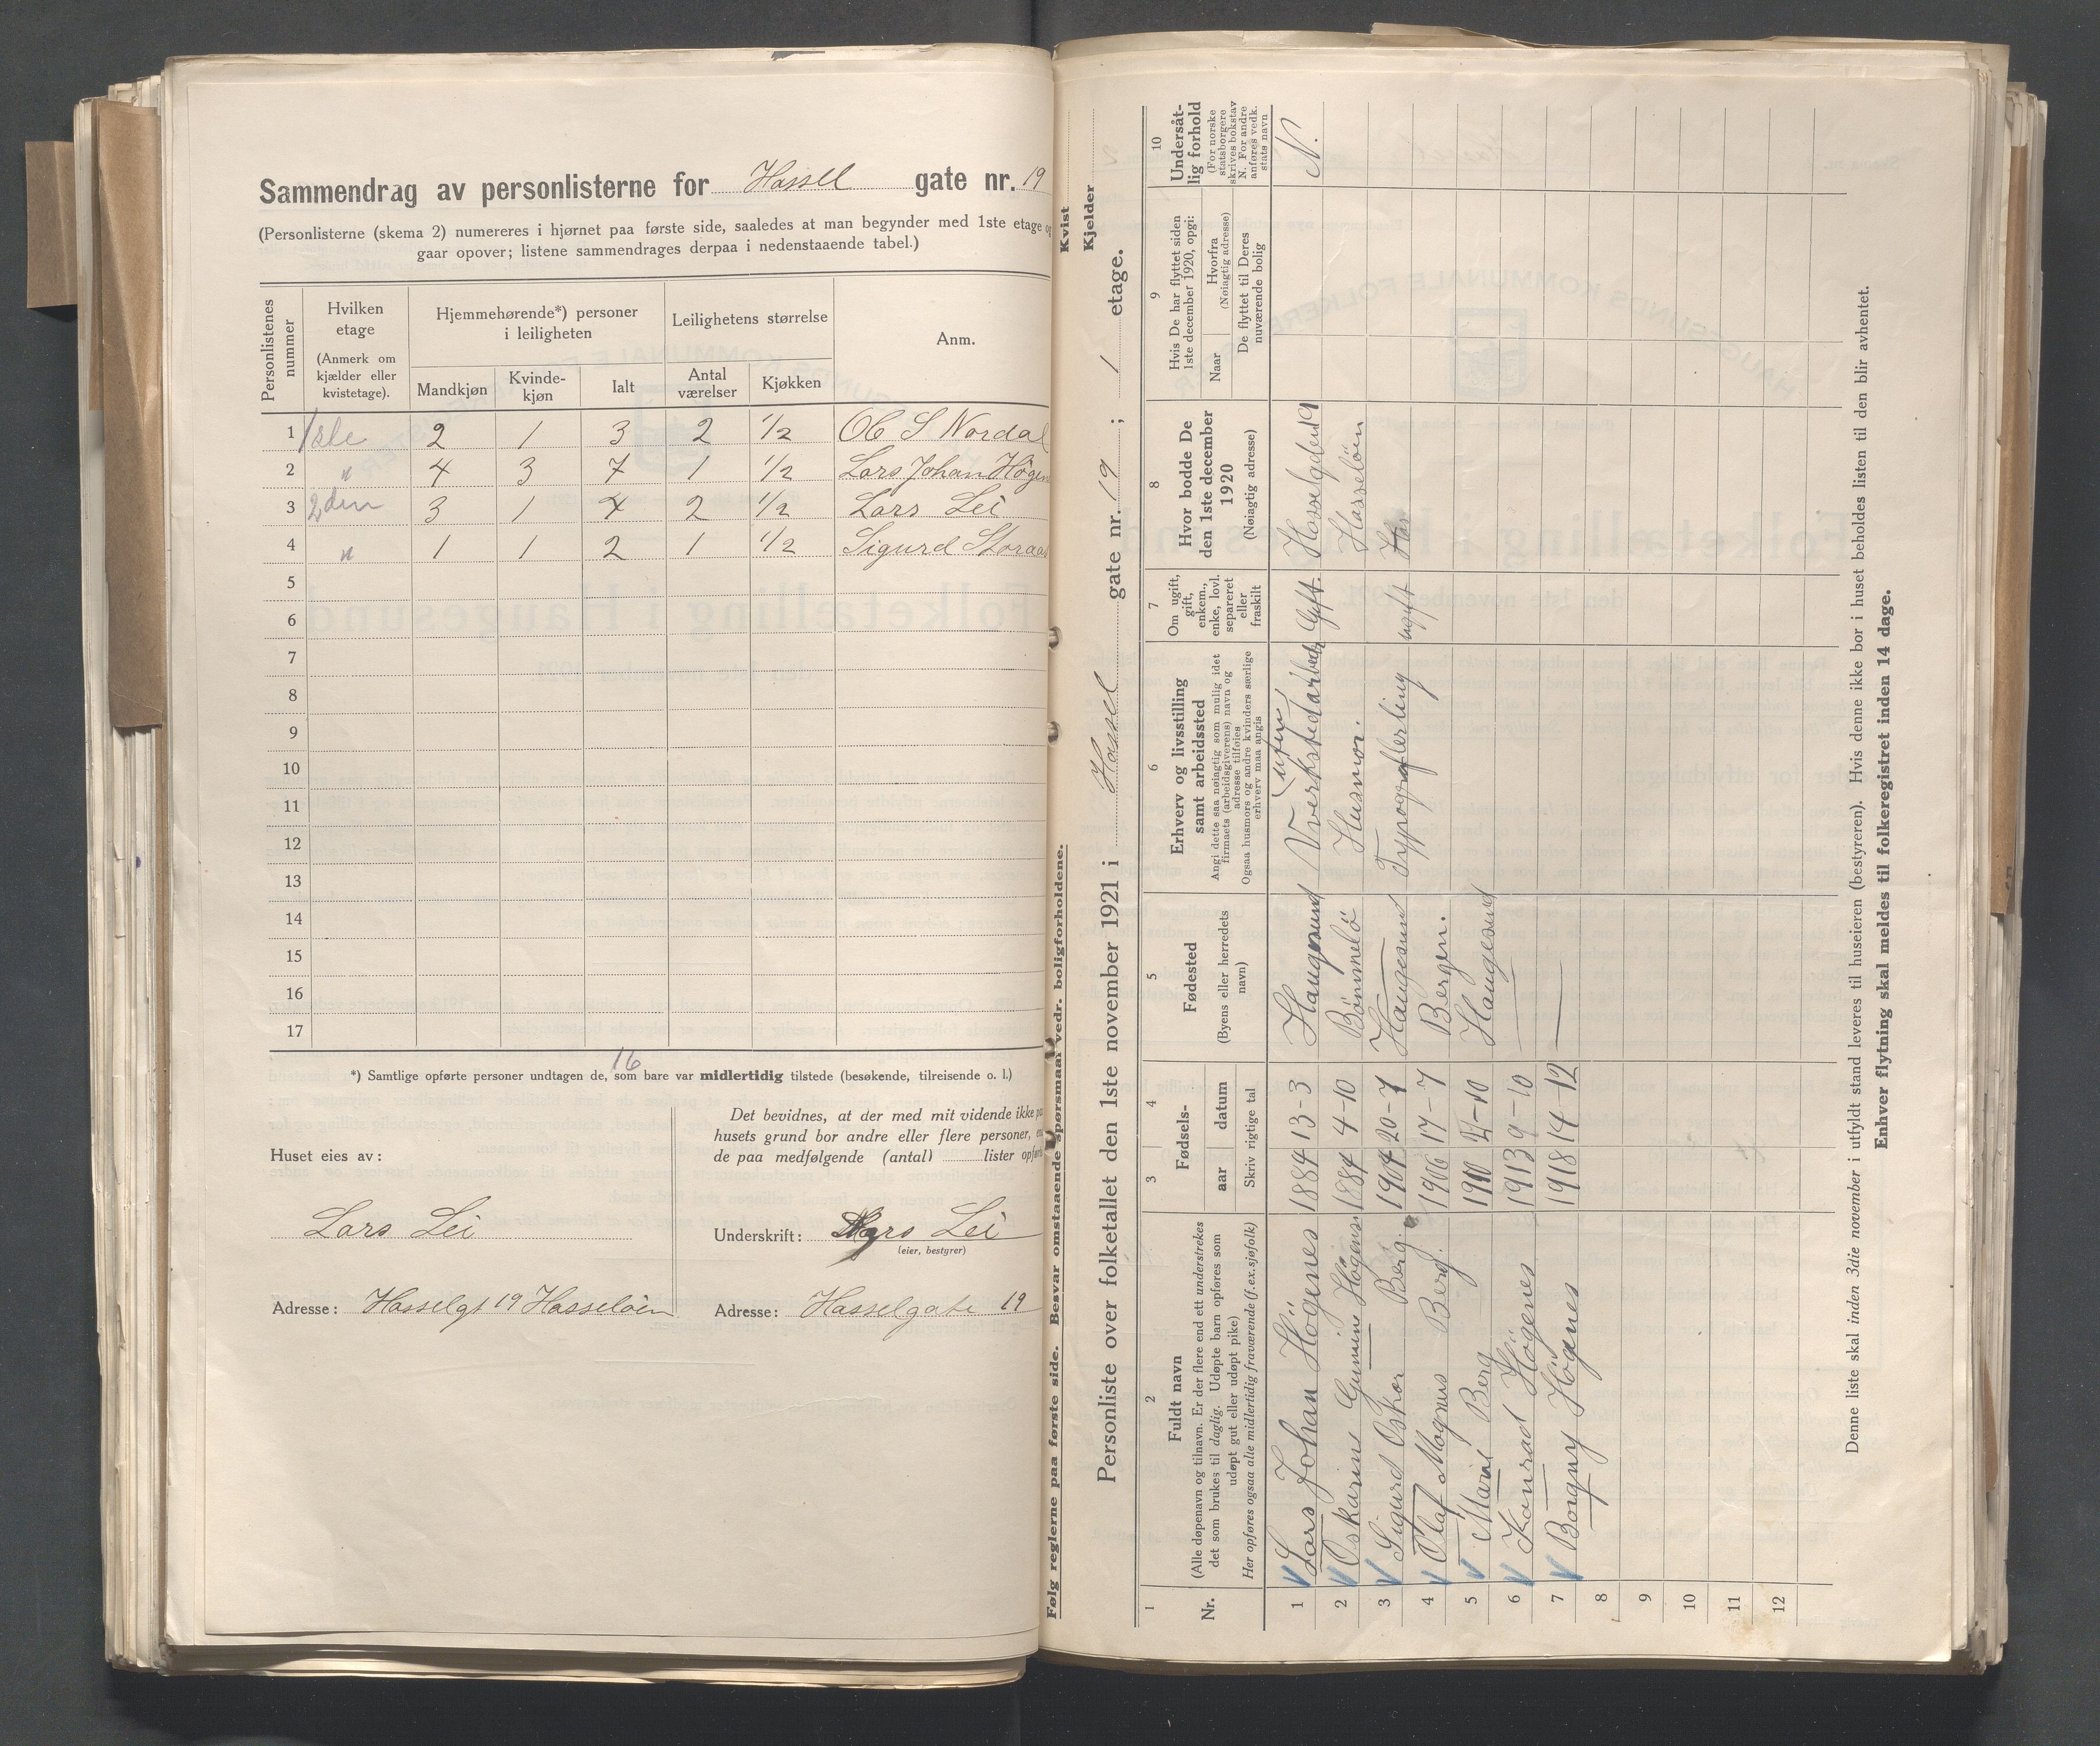 Sammendrag av personlisterne for Hassel gate nr. 19
(Personlisterne (skema 2) numereres i hjørnet paa første side, saaledes at man begynder med 1ste etage og
gaar opover; listene sammendrages derpaa i nedenstaaende tabel.)
Personlistenes nummer
Hvilken etage
(Anmerk om kjælder eller kvistetage).
Hjemmehørende*) personer i leiligheten
Leilighetens størrelse
Anm.
Mandkjøn Kvinde-kjøn Ialt Antal værelser Kjøkken
1 1ste 2 1 3 2 1/2 Ob S Nordal
2 " 4 3 7 1 1/2 Lars Johan Högen
3 2den 3 1 4 2 1/2 Lars Lei
4 " 1 1 2 1 1/2 Sigurd
5
6
7
8
9
10
11
12
13
14
15
16
17
16
*) Samtlige opførte personer undtagen de, som bare var midlertidig tilstede (besøkende, tilreisende o. l.)
Huset eies av:
Lars Lei
Adresse: Hasselgt 19 Hasseløen
Det bevidnes, at der med mit vidende ikke pa
husets grund bor andre eller flere personer,
de paa medfølgende (antal) lister opfør
Underskrift: Lars Lei
(eier, bestyrer)
Adresse: Hasselgate 19
Følg reglerne paa første side. Besvar omstaaende spørsmaal vedr. boligforholdene.
Kvist
Kjelder
Personliste over folketallet den 1ste november 1921 i Hassel gate nr. 19 ; 1 etage.
1 2 3 4 5 6 7 8 9 10
Nr.
Fuldt navn
(Alle døpenavn og tilnavn. Er der flere end ett understrekes
det som brukes til daglig. Udøpte barn opføres som
udøpt gut eller udøpt pike)
Her opføres ogsaa alle midlertidig fraværende (f. ex. sjøfolk)
Fødsels-
aar datum
Skriv rigtige tal
Fødested
(Byens eller herredets navn)
Erhverv og livsstilling
samt arbeidssted
Angi dette saa nøiagtig som mulig idet
firmaets (arbeidsgiverens) navn og
adresse tilføies
Ogsaa husmors og andre kvinders særlige
erhverv maa angis
Om ugift,
gift,
enkem.,
enke, lovl.
separeret
eller
fraskilt
Hvor bodde De
den 1ste december
1920
(Nøiagtig adresse)
Hvis De har flyttet siden
1ste december 1920, opgi:
Naar
Hvorfra
(Nøiagtig adresse)
De flyttet til Deres
nuværende bolig
Undersåt-
lig forhold
(For norske
statsborgere
skrives bokstav
N. For andre
anføres vedk.
stats navn
1 Lars Johan Högenes 1884 13-3 Haugesund Verkstedarbeide Gift. Hasselgden 19 N.
2 Oskarine Gunnine Högenes 1884 4-10 Bömmelö Husmor. Hasseløen
3 Sigurd Oskar Berg. 1904 20-7 Haugesund Typograflerling ugift Has
4 Olaf Magnus Berg. 1906 17-7 Bergen.
5 Marie Berg 1910 -10 Haugesund
6 Konrad Högenes 1913 9-10 —
7 Borgny Högnes 1918 14-12 —
8
9
10
11
12
Denne liste skal inden 3die november i utfyldt stand leveres til huseieren (bestyreren). Hvis denne ikke bor i huset beholdes listen til den blir avhentet.
Enhver flytning skal meldes til folkeregistret inden 14 dage.